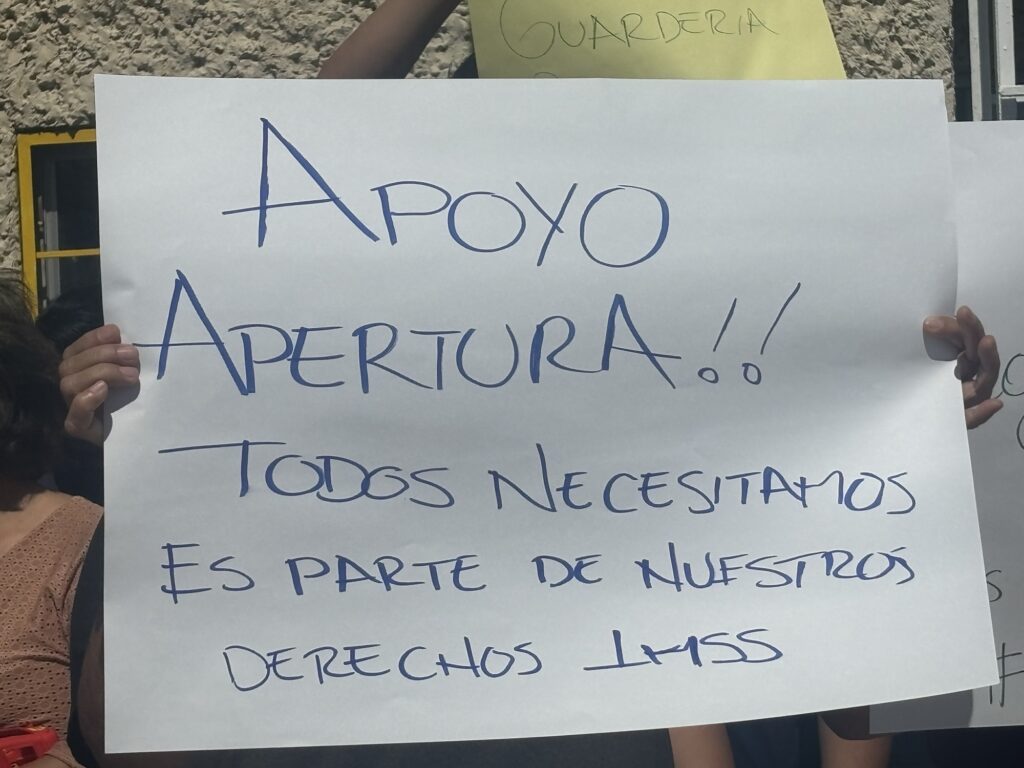 GUARDERIA
APOYO
APERTURA!!
TODOS NECESITAMOS
ES PARTE DE NUESTROS
DERECHOS IMSS
#